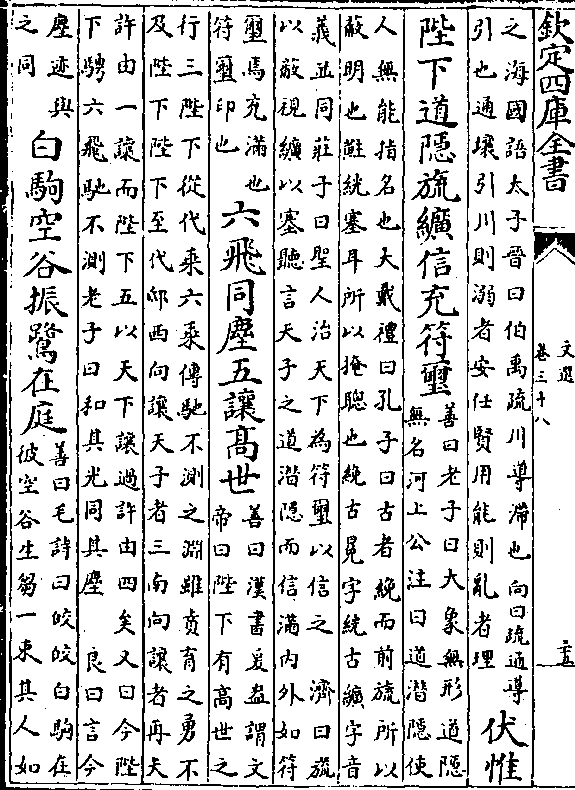 欽定四庫全書
文選
卷三十八
二十五
之海國語太子晉曰伯禹疏川導滯也向曰疏通導
引也通壤引川則溺者安任賢用能則亂者理
伏惟
陛下道隱旒纊信充符璽
善曰老子曰大象無形道隱
無名河上公注曰道潜隱使
人無能指名也大戴禮曰孔子曰古者絻而前旒所以
蔽明也黈絖塞耳所以掩聰也絻古冕字絖古纊字音
義並同莊子曰聖人治天下為符璽以信之 濟曰旒
以蔽視纊以塞聽言天子之道潜隱而信滿内外如符
璽焉充滿也
符璽印也
六飛同塵五讓髙世
善曰漢書爰盎謂文
帝曰陛下有高世之
行三陛下從代乗六乗傳馳不測之淵雖賁育之勇不
及陛下陛下至代邸西向讓天子者三南向讓者再夫
許由一讓而陛下五以天下讓過許由四矣又曰今陛
下騁六飛馳不測老子曰和其光同其塵 良曰言今
塵迹與
之同
白駒空谷振鷺在庭
善曰毛詩曰皎皎白駒在
彼空谷生芻一束其人如